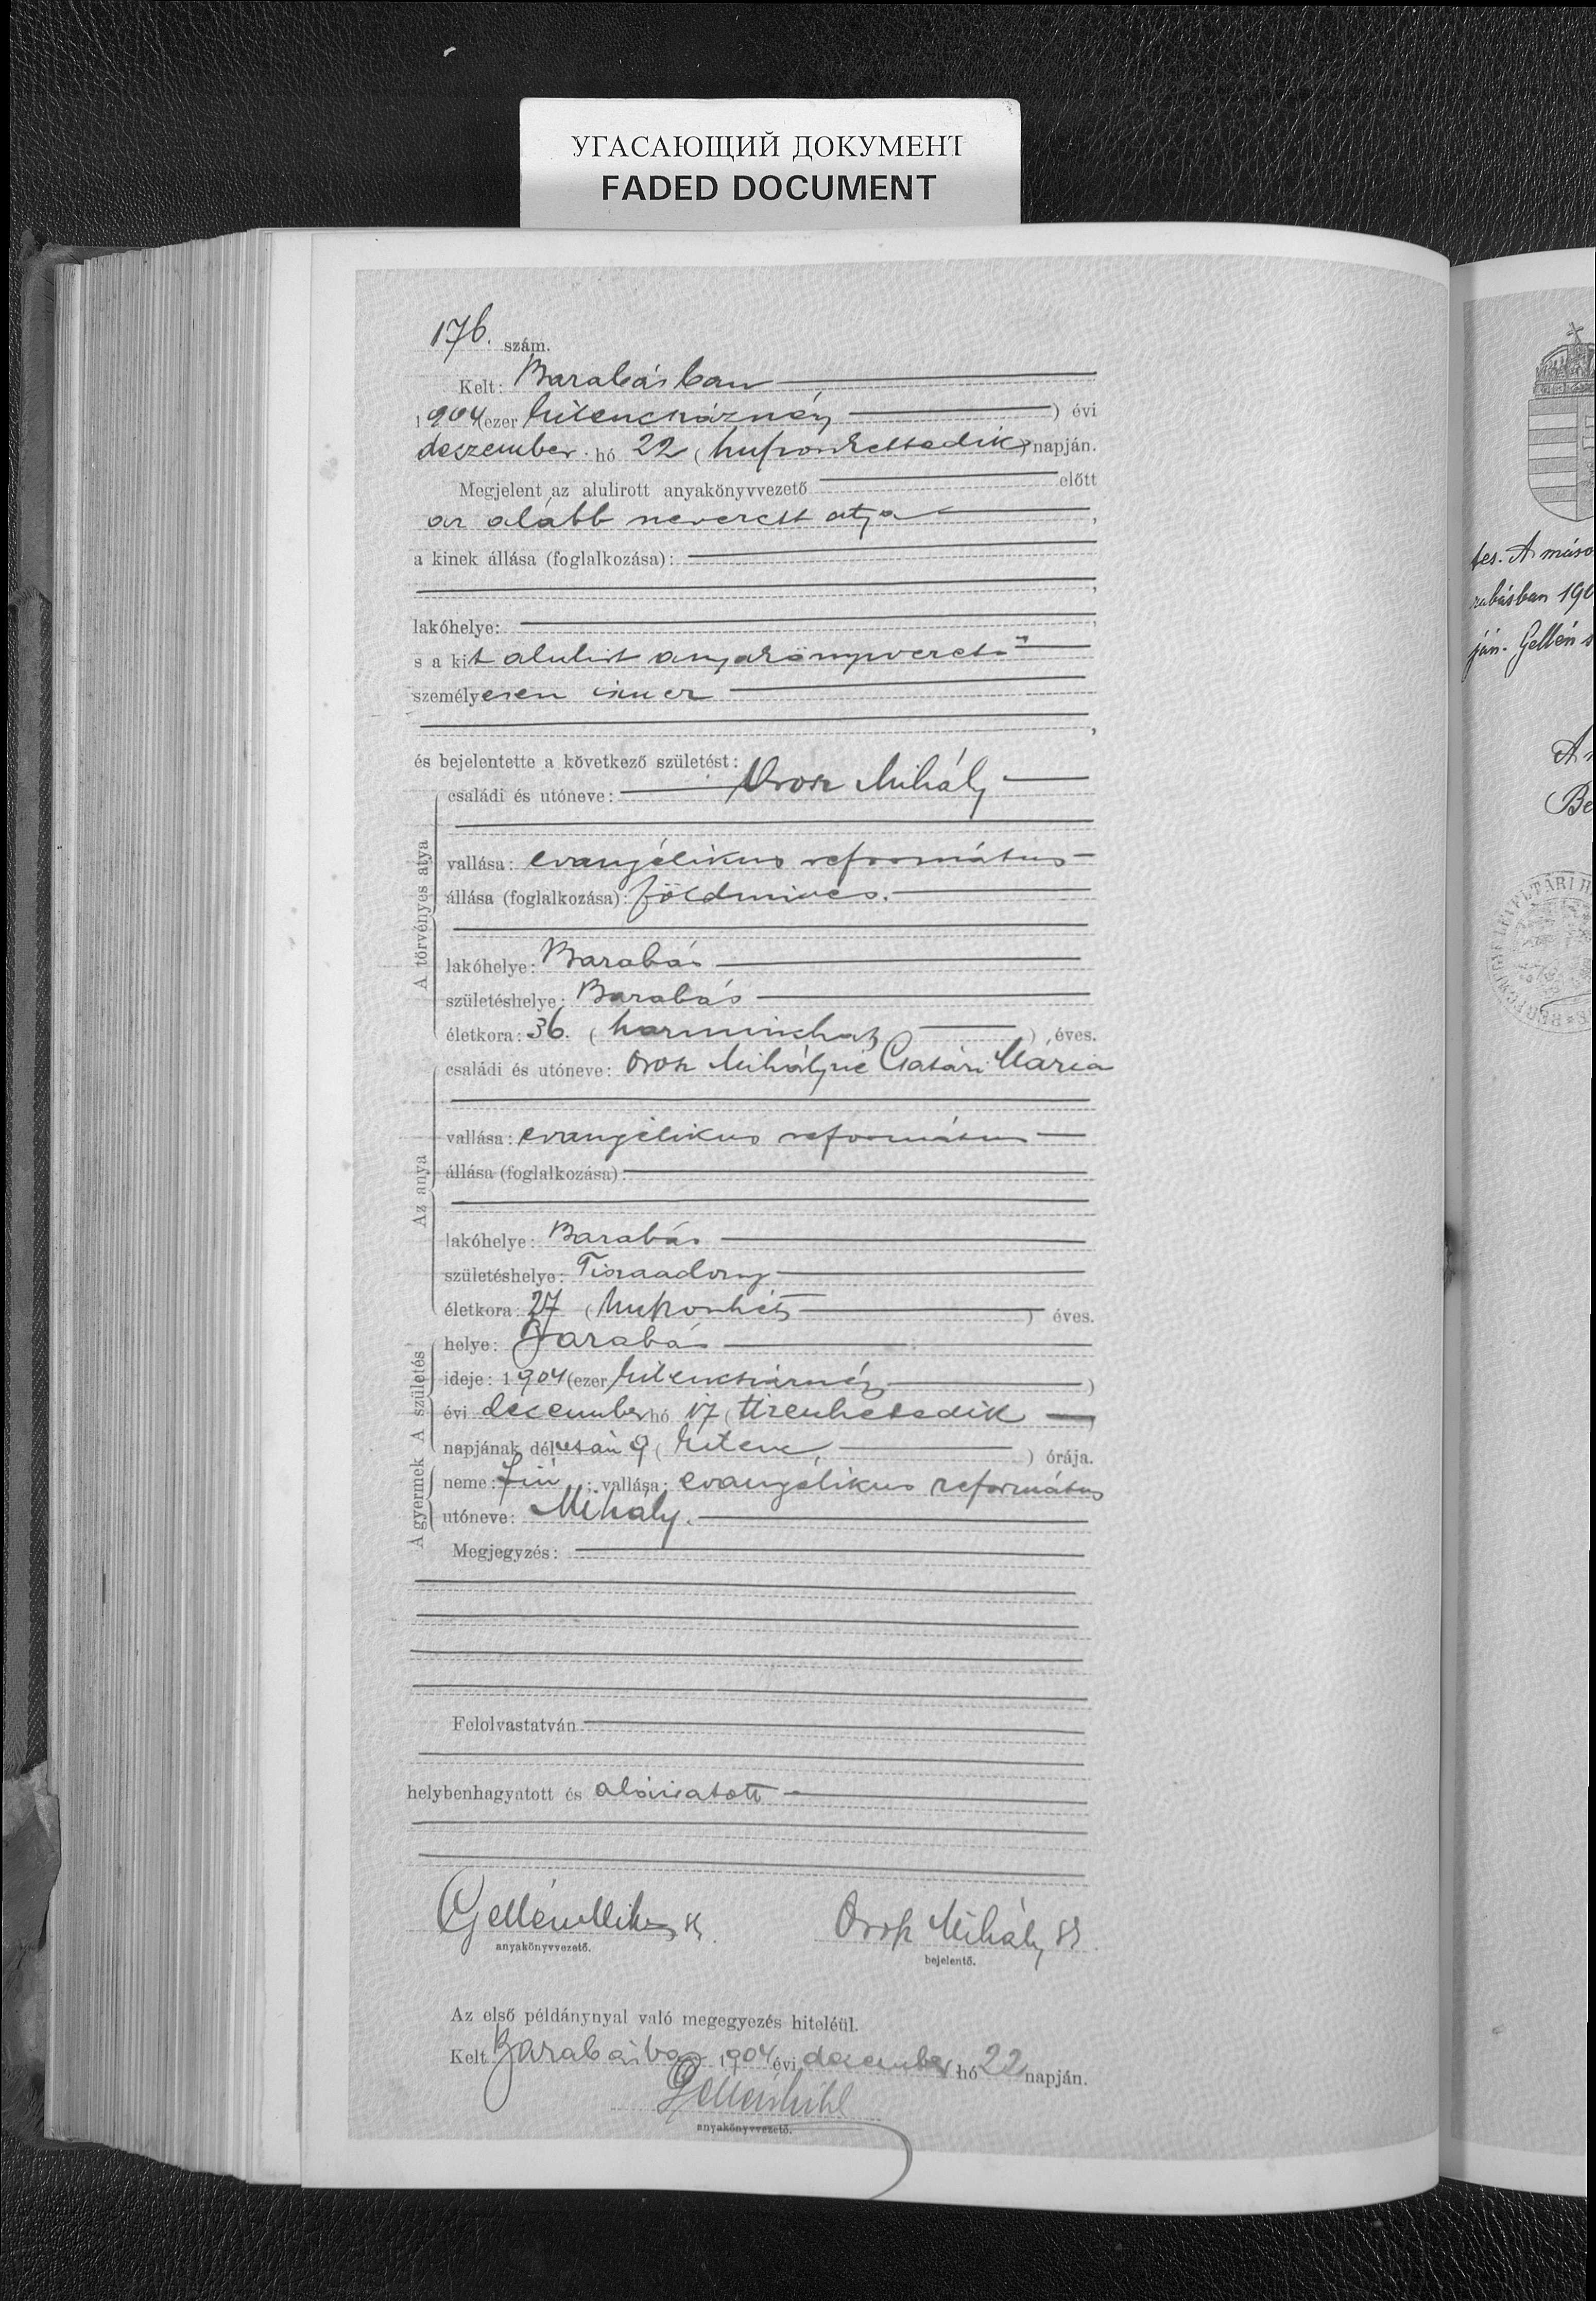 УГАСАЮЩИЙ ДОКУМЕНТ
FADED DOCUMENT
176. szám.
Kelt: Barabásban
1904 (ezer kilenczszáznégy) évi
deczember hó 22 (huszonkettedik) napján.
Megjelent az alulirott anyakönyvvezető előtt
az alább nevezett atya,
a kinek állása (foglalkozása):
lakóhelye:
s a kit alulirt anyakönyvvezető
személyesen ismer
és bejelentette a következő születést:
A törvényes atya
családi és utóneve: Orosz Mihály
vallása: evangélikus református
állása (foglalkozása): földmives.
lakóhelye: Barabás
születéshelye: Barabás
életkora: 36. (harminchat) éves.
Az anya
családi és utóneve: Orosz Mihályné Csatári Mária
vallása: evangélikus református
állása (foglalkozása):
lakóhelye: Barabás
születéshelye: Tiszaadony
életkora: 27 (huszonhét) éves.
A születés
helye: Barabás
ideje: 1904 (ezer kilenczszáznégy)
évi december hó 17 (tizenhetedik)
napjának délután 9 (kilenc) órája.
A gyermek
neme: fiú; vallása: evangélikus református
utóneve: Mihály.
Megjegyzés:
Felolvastatván
helybenhagyatott és aláiratott
Gellén Mihály sk. Orosz Mihály sk
anyakönyvvezető. bejelentő.
Az első példánynyal való megegyezés hiteléül.
Kelt Barabásban 1904 évi december hó 22 napján.
Gellén Mihály
anyakönyvvezető.
tes. A máso
rabásban 190
ján. Gellén
A
Be